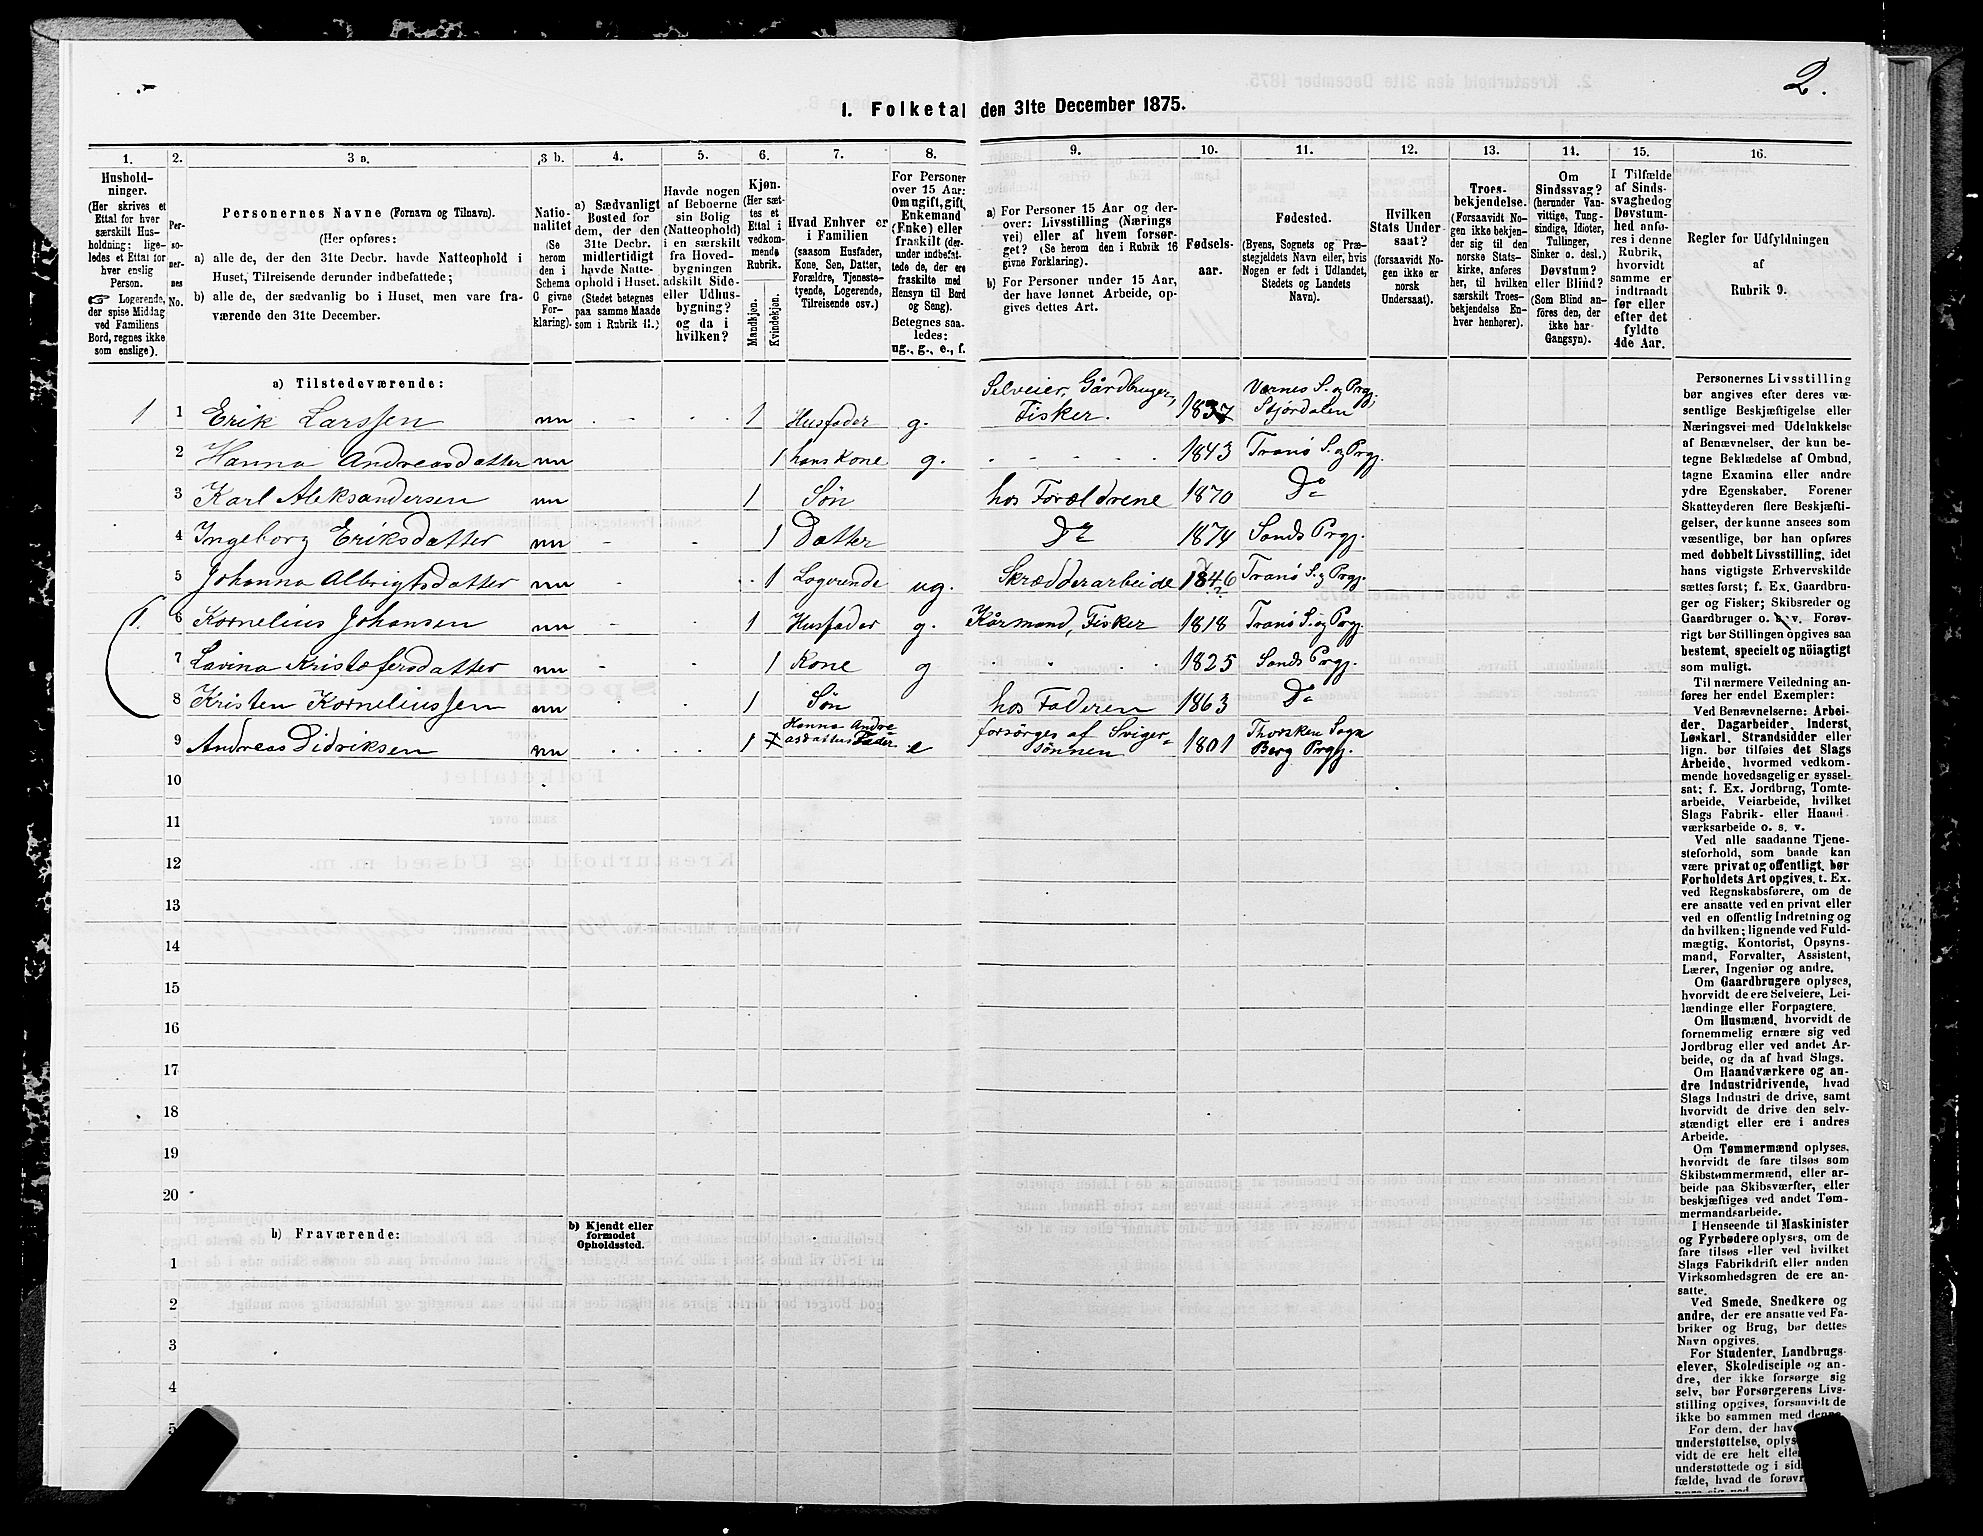 2.
1. Folketal den 31te December 1875.
1. 2. 3 a. 3 b. 4. 5. 6. 7. 8. 9. 10. 11. 12. 13. 14. 15. 16.
Hushold-
ninger.
(Her skrives et
Ettal for hver
særskilt Hus-
holdning; lige-
ledes et Ettal for
hver enslig
Person.
☞ Logerende,
der spise Middag
ved Familiens
Bord, regnes ikke
som enslige).
Per-
so-
ner-
nes
No.
Personernes Navne (Fornavn og Tilnavn).
(Her opføres:
a) alle de, der den 31te Decbr. havde Natteophold i
Huset, Tilreisende derunder indbefattede;
b) alle de, der sædvanlig bo i Huset, men vare fra-
værende den 31te December.
Natio-
nalitet
(Se
herom
den i
Schema
C givne
For-
klaring).
a) Sædvanligt
Bosted for
dem, der den
31te Decbr.
midlertidigt
havde Natte-
ophold i Huset.
(Stedet betegnes
paa samme Maade
som i Rubrik 11.)
Havde nogen
af Beboerne
sin Bolig
(Natteophold)
i en særskilt
fra Hoved-
bygningen
adskilt Side-
eller Udhus-
bygning?
og da i
hvilken?
Kjøn.
(Her sæt-
tes et
Ettal i
vedkom-
mende
Rubrik.
Mandkjøn.
Kvindekjøn.
Hvad Enhver er
i Familien
(saasom Husfader,
Kone, Søn, Datter,
Forældre, Tjeneste-
tyende, Logerende,
Tilreisende osv.)
For Personer
over 15 Aar:
Om ugift, gift,
Enkemand
(Enke) eller
fraskilt (der-
under indbefat-
tede de, der ere
fraskilte med
Hensyn til Bord
og Seng).
Betegnes saa-
ledes:
ug., g., e., f.
a) For Personer 15 Aar og der-
over: Livsstilling (Nærings
vei) eller af hvem forsør-
get? (Se herom den i Rubrik 16
givne Forklaring).
b) For Personer under 15 Aar,
der have lønnet Arbeide, op-
gives dettes Art.
Fødsels-
aar.
Fødested.
(Byens, Sognets og Præ-
stegjeldets Navn eller, hvis
Nogen er født i Udlandet,
Stedets og Landets
Navn).
Hvilken
Stats Under-
saat?
(forsaavidt No-
gen ikke er
norsk
Undersaat).
Troes-
bekjendelse.
(Forsaavidt No-
gen ikke bekjen-
der sig til den
norske Stats-
kirke, anføres
her, til hvilken
særskilt Troes-
bekjendelse En-
hver henhører).
Om
Sindssvag?
(herunder Van-
vittige, Tung-
sindige, Idioter,
Tullinger,
Sinker o. desl.)
Døvstum?
eller Blind?
(Som Blind an-
føres den, der
ikke har
Gangsyn).
I Tilfælde
af Sinds-
svaghed og
Døvstum-
hed anfø-
res i denne
Rubrik,
hvorvidt
samme er
indtraadt
før eller
efter det
fyldte
4de Aar.
Regler for Udfyldningen
af
Rubrik 9.
a) Tilstedeværende:
1 1 Erik Larssen nn 1 Husfader g. Selveier, Gårdbruger, Fisker. 1837 Værnes S. og Prgj. Stjørdalen
2 Hanna Andreasdatter nn 1 hans Kone g. 1843 Tranø S. og Prgj.
3 Karl Aleksandersen nn 1 Søn hos Forældrene 1870 Do
4 Ingeborg Eriksdatter nn 1 Datter Do 1874 Sands Prgj.
5 Johanna Albrigtsdatter nn 1 Logerende ug. Skrædderarbeide 1846 Tranø S. og Prgj.
1. 6 Kornelius Johansen nn 1 Husfader g. Kårmand, Fisker 1818 Tranø S. og Prgj.
7 Lavina Kristofersdatter nn 1 Kone g 1825 Sands Prgj.
8 Kristen Korneliussen nn 1 Søn hos Faderen 1863 Do
9 Andreas Didriksen nn 1 Hanna Andreasdatters Fader e forsørges af Svigersønnen 1801 Thorsken Sogn Berg Prgj.
10
11
12
13
14
15
16
17
18
19
20
b) Fraværende:
b) Kjendt eller
formodet
Opholdssted.
1
2
3
4
5
Personernes Livsstilling
bør angives efter deres væ-
sentlige Beskjæftigelse eller
Næringsvei med Udelukkelse
af Benævnelser, der kun be-
tegne Beklædelse af Ombud,
tagne Examina eller andre
ydre Egenskaber. Forener
Skatteyderen flere Beskjæfti-
gelser, der kunne ansees som
væsentlige, bør han opføres
med dobbelt Livsstilling, idet
hans vigtigste Erhvervskilde
sættes først; f. Ex. Gaardbru-
ger og Fisker; Skibsreder og
Gaardbruger o. s. v. Forøv-
rigt bør Stillingen opgives saa
bestemt, specielt og nøiagtigt
som muligt.
Til nærmere Veiledning an-
føres her endel Exempler:
Ved Benævnelserne: Arbei-
der, Dagarbeider, Inderst,
Løskarl, Strandsidder eller
lign. bør tilføies det Slags
Arbeide, hvormed vedkom-
mende hovedsagelig er syssel-
sat; f. Ex. Jordbrug, Tomte-
arbeide, Veiarbeide, hvilket
Slags Fabrik- eller Haand-
værksarbeide o. s. v.
Ved alle saadanne Tjene-
steforhold, som baade kan
være privat og offentligt, bør
Forholdets Art opgives, t. Ex.
ved Regnskabsførere, om de
ere ansatte ved en privat eller
ved en offentlig Indretning og
da hvilken; lignende ved Fuld-
mægtig, Kontorist, Opsyns-
mand, Forvalter, Assistent,
Lærer, Ingeniør og andre.
Om Gaardbrugere oplyses,
hvorvidt de ere Selveiere, Lei-
lændinge eller Forpagtere.
Om Husmænd, hvorvidt de
fornemmelig ernære sig ved
Jordbrug eller ved andet Ar-
beide, og da af hvad Slags.
Om Haandværkere og an-
dre Industridrivende, hvad
Slags Industri de drive, samt
hvorvidt de drive den selv-
stændigt eller ere i andres
Arbeide.
Om Tømmermænd oplyses,
hvorvidt de fare tilsøs som
Skibstømmermænd, eller ar-
beide paa Skibsværfter, eller
beskjæftiges ved andet Tøm-
mermandsarbeide.
I Henseende til Maskinister
og Fyrbødere oplyses, om de
fare tilsøs eller ved hvilket
Slags Fabrikdrift eller anden
Virksomhedsgren de ere an-
satte.
Ved Smede, Snedkere og
andre, der ere ansatte ved Fa-
briker og Brug, bør dettes
Navn opgives.
For Studenter, Landbrugs-
elever, Skoledisciple og an-
dre, der ikke forsørge sig
selv, bør Forsørgerens Livs-
stilling opgives, forsaavidt de
ikke bo sammen med denne.
For dem, der have
understøttelse, oplyses
vidt de ere helt eller
understøttede og i sid
fælde, hvad de forøv